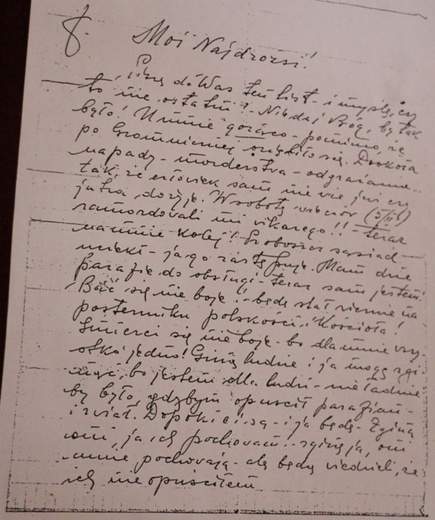 8.
Moi Najdrożsi!
Piszę do Was ten list - i myślę, czy
to nie ostatni? - Nie daj Bóg, by tak
było! U mnie gorąco - pomimo, że
po Gromnicznej oziębiło się. Dookoła
napady - morderstwa - odgrażanie -
tak, że człowiek sam nie wie już czy
jutra dożyje. W sobotę wieczór
zamordowali mi wikarego!! - teraz
na mnie - kolej! Proboszcz sąsiad -
uciekł - ja go zastępuję. Mam dwie
parafie do obsługi - teraz sam jestem!
Bać się nie boję! - będę stał wiernie na
posterunku polskości i Kościoła!
Śmierci się nie boję - bo dla mnie wszy-
stko jedno! Giną ludzie i ja mogę zgi-
nąć, bo jestem dla ludzi - nieładnie
by było, gdybym opuścił parafian -
i zwiał. Dopóki ci są - i ja będę. Zginą
oni, ja ich pochowam - zginę ja, oni
mnie pochowają - ale będą wiedzieli, że
ich nie opuściłem